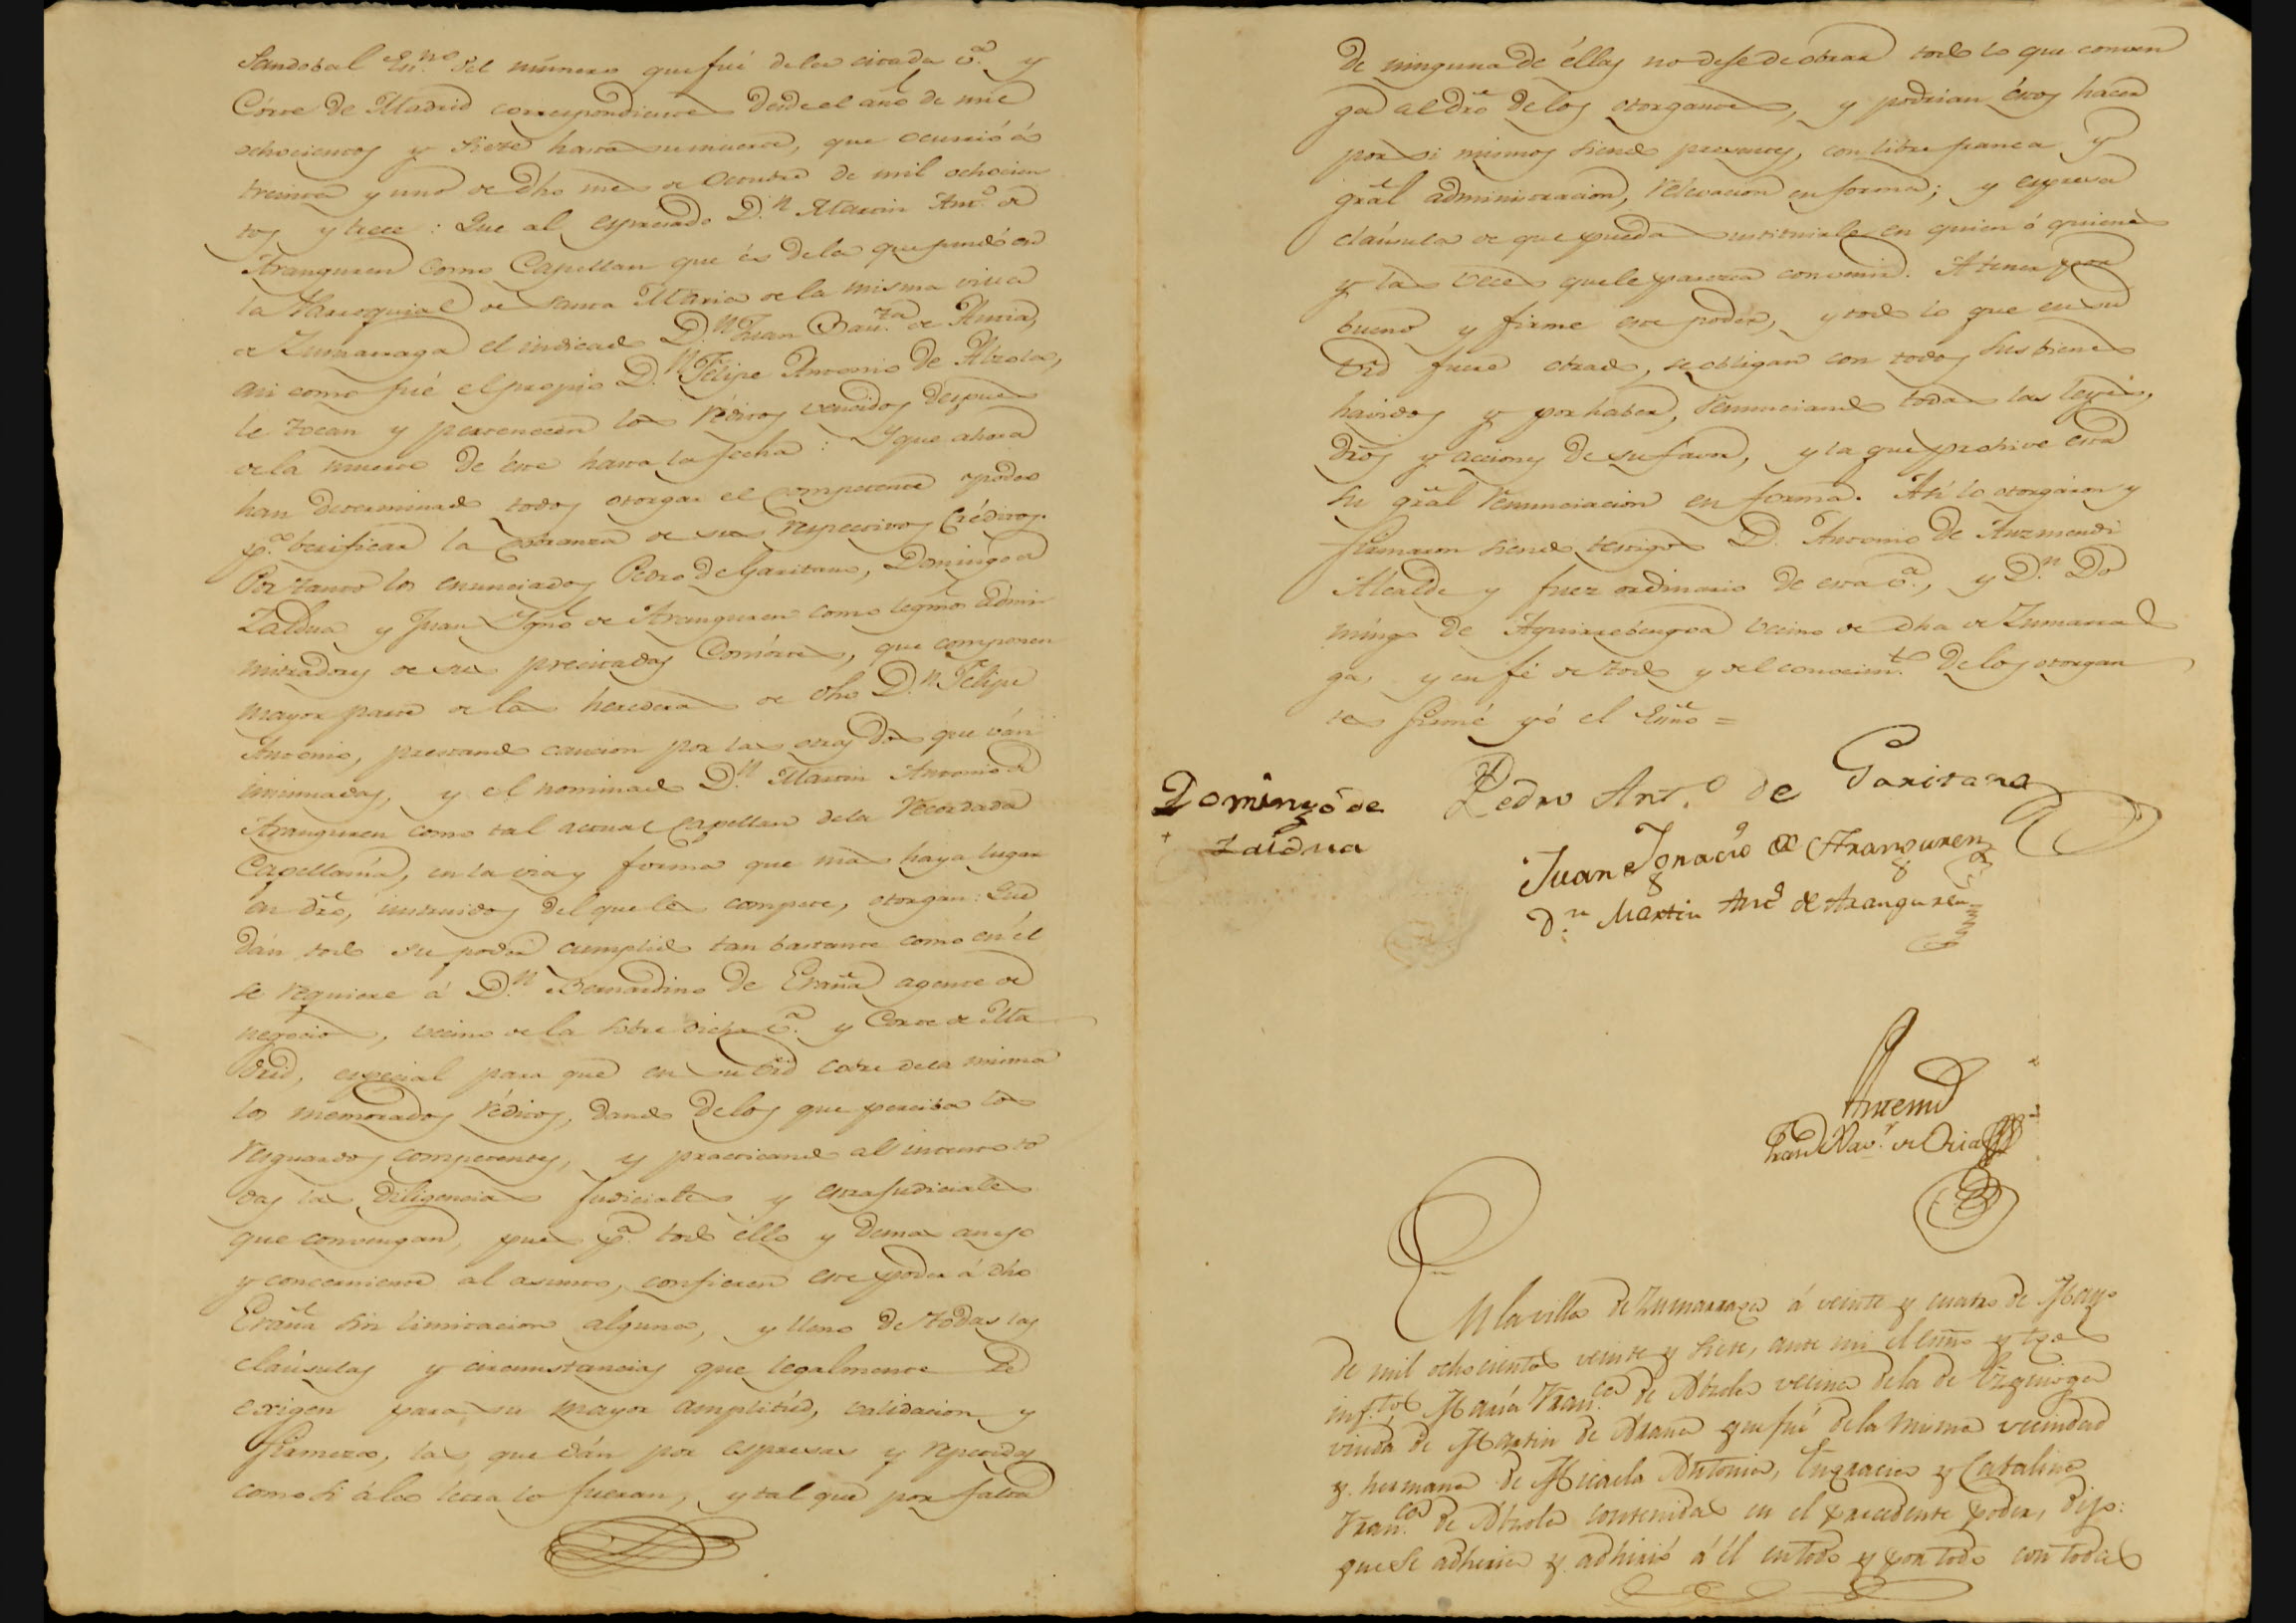 Sandobal Esn.no del número que fué de la citada v.a y
Córte de Madrid correspondientes desde el año de mil
ochocientos y siete hasta su muerte, que ocurrió á
treinta y uno de dho mes de Octubre de mil ochocien
tos y trece: Que al espresado D.n Martin Ant.o de
Aranguren como Capellan que és de la que fundó en
la Parroquial de Santa Maria de la misma villa
de Zumarraga el indicado D.n Juan Bau.ta de
asi como fué el propio D.n Felipe Antonio de Alzola,
le tocan y pertenecen los réditos vencidos despues
de la muerte de éste hasta la fecha: Y que ahora
han determinado todos otorgar el competente poder
p.a berificar la cobranza de sus respectivos créditos.
Por tanto los enunciados Pedro de Garitano, Domingo de
Zaldua y Juan Ign.o de Aranguren como legmos admi
nistradores de sus precitadas Consórtes, que componen
mayor parte de las herederas de dho D.n Felipe
Antonio, prestando caucion por las otras dos que ván
insinuadas, y el nominado D.n Martin Antonio de
Aranguren como tal actual Capellan de la recordada
Capellanía, en la via y forma que mas haya lugar
en dro, instruidos del que les compete, otorgan: Que
dán todo su poder cumplido tan bastante como en él
se requiere á D.n Bernardino de Eraña agente de
negocios, vecino de la sobre dicha v.a y Corte de Ma
drid, especial para que en su vrd cobre de la misma
los memorados réditos, dando de los que perciba los
resguardos competentes, y practicando al intento to
das las diligencias judiciales y extrajudiciales
que convengan, pues p.a todo ello y demas anejo
y concerniente al asunto, confieren este poder á dho
Eraña sin limitacion alguna, y lleno de todas las
claúsulas y circunstancias que legalmente se
exigen para su mayor amplitúd, validacion y
firmeza, las que dán por espresas y repetidas
como si á la letra lo fueran, y tal que por falta
de ninguna de éllas no deje de obrar todo lo que conven
ga al dro de los otorgantes, y podrian éstos hacer
por si mismos siendo presentes, con libre franca y
gral administracion, relevacion en forma; y espresa
claúsula de que pueda substituirle en quien ó quienes
y las veces que le parezca convenir. A tener por
bueno y firme este poder, y todo lo que en su
vrd fuere obrado, se obligan con todos sus bienes
havidos y por haber, renunciando todas las leyes,
dros y acciones de su favor, y la que prohive esta
su gral renunciacion en forma. Asi lo otorgáron y
firmaron siendo testigos D. Antonio de Auzmendi
Alcalde y Juez ordinario de esta v.a, y D.n Do
míngo de Aguirrebengoa vecino de dha de Zumarra
ga, y en fé de todo y del conocim.to de los otorgan
tes firmé yó el Esno =
Domingo de
Zaldua
Pedro Ant.o de Garitano
Juan Ignacio de Aranguren
D.n Martin Anto de Aranguren
Antemi
Fran.co Xav.r de Oria
En la villa de Zumarraga á veinte y cuatro de Mayo
de mil ochocientos veinte y siete, ante mi el esno y tgos
inf.tos María Fran.ca de Alzola vecina de la de Ezquioga
viuda de Martin de Arana que fué de la misma vecindad
y hermana de Micaela Antonia, Engracia y Catalina
Fran.ca de Alzola contenidas en el precedente poder, dijo:
que se adheria y adhirió á él en todo y por todo con todas